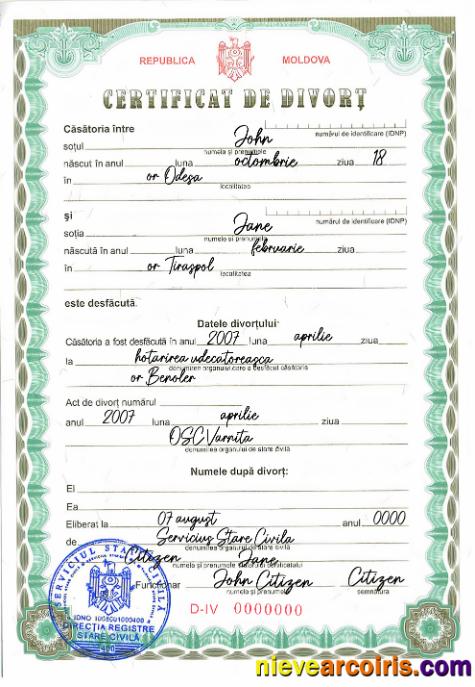 REPUBLICA MOLDOVA
CERTIFICAT DE DIVORȚ
Căsătoria între
soțul John
numele și prenumele numărul de identificare (IDNP)
născut în anul luna octombrie ziua 18
în or Odesa
localitatea
și
soția Jane
numele și prenumele numărul de identificare (IDNP)
născută în anul luna februarie ziua
în or Tiraspol
localitatea
este desfăcută.
Datele divorțului
Căsătoria a fost desfăcută în anul 2007 luna aprilie ziua
la hotarirea udecatoreasca
denumirea organului care a desfăcut căsătoria
or Benoler
Act de divorț numărul
anul 2007 luna aprilie ziua
OSC Varnita
denumirea organului de stare civilă
Numele după divorț:
El
Ea
Eliberat la 07 august anul 0000
de Serviciul Stare Civila
denumirea organului de stare civilă
Citizen Jane
Funcționar John Citizen Citizen
numele și prenumele semnătura
D-IV 0000000
SERVICIUL STARE CIVILĂ
IDNO
DIRECȚIA REGISTRE
STARE CIVILĂ
nievearcoiris.com